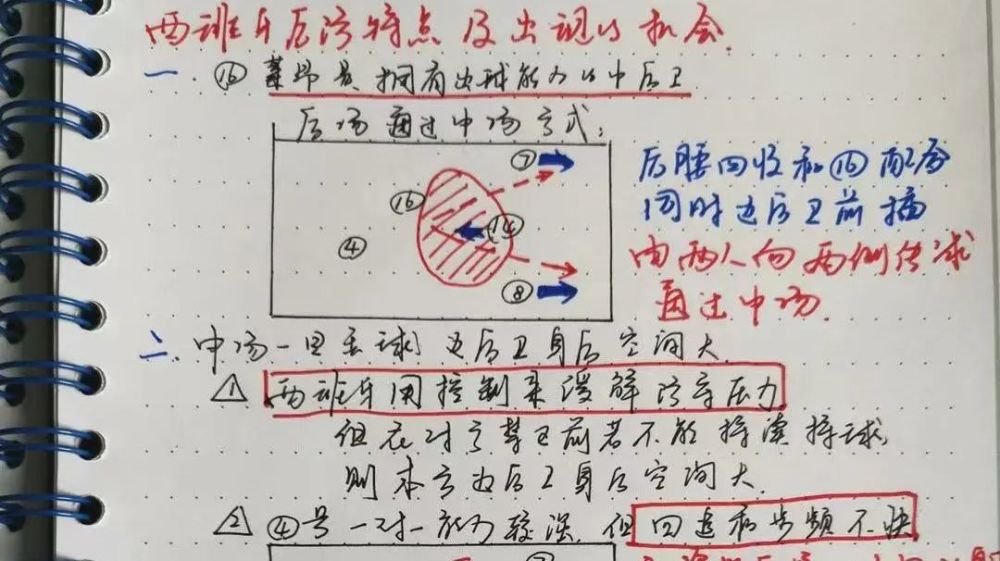 西班牙后防特点及出现的机会
一. ⑯ 莱昂是拥有出球能力的中后卫
后场通过中场方式:
⑦
⑯
⑭
④
⑧
后腰回收和⑯配合
同时边后卫前插
由两人向两侧传球
通过中场.
二. 中场一旦丢球 边后卫身后空间大.
△1 西班牙用控制来缓解防守压力
但在对方禁区前若不能持续持球,
则本方边后卫身后空间大.
△2 ④号一对一能力较强, 但回追和步频不快